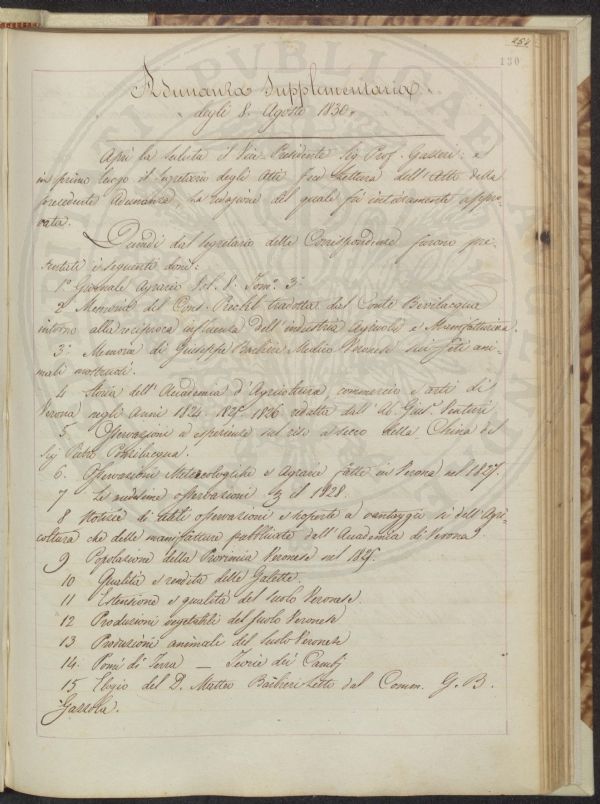 258
130
Adunanza Supplementaria
degli 8. Agosto 1830.
Aprì la seduta il Vice Presidente Sig. Prof. Gazzeri: e
in primo luogo il Segretario degli Atti fece lettura dell'Atto della
precedente Adunanza, la redazione del quale fu interamente appro-
vata.
Quindi dal Segretario delle Corrispondenze furono pre-
sentati i seguenti doni:
1.° Giornale Agrario Vol. 8. Tom.° 3.°
2. Memoria del Cons. Prechtl tradotta dal Conte Bevilacqua
intorno alla reciproca influenza dell'industria Agricola e Manifatturina.
3.° Memoria di Giuseppe Barbieri Medico Veronese sui feti ani-
mali mostruosi.
4. Storia dell'Academia d'Agricoltura, commercio e arti di
Verona negli Anni 1824. 1825. 1826. redatta dall'Ab. Gius. Venturi
5. Osservazioni e esperienze sul riso a secco della China del
Sig. Pietro Bevilacqua.
6. Osservazioni Meteorologiche e Agrarie fatte in Verona nel 1827.
7. Le medesime osservazioni il 1828.
8. Notizie di utili osservazioni e scoperte a vantaggio sì dell'Agri-
coltura che delle manifatture pubblicate dall'Academia di Verona.
9 Popolazione della Provincia Veronese nel 1827.
10 Qualità e rendita delle Galette.
11 Estensione e qualità del suolo Veronese.
12 Produzioni vegetabili del suolo Veronese
13 Produzioni animali del suolo Veronese
14. Pomi di Terra —
15. Elogio del D. Matteo Barbieri letto dal Comm. G. B.
Gazzola.